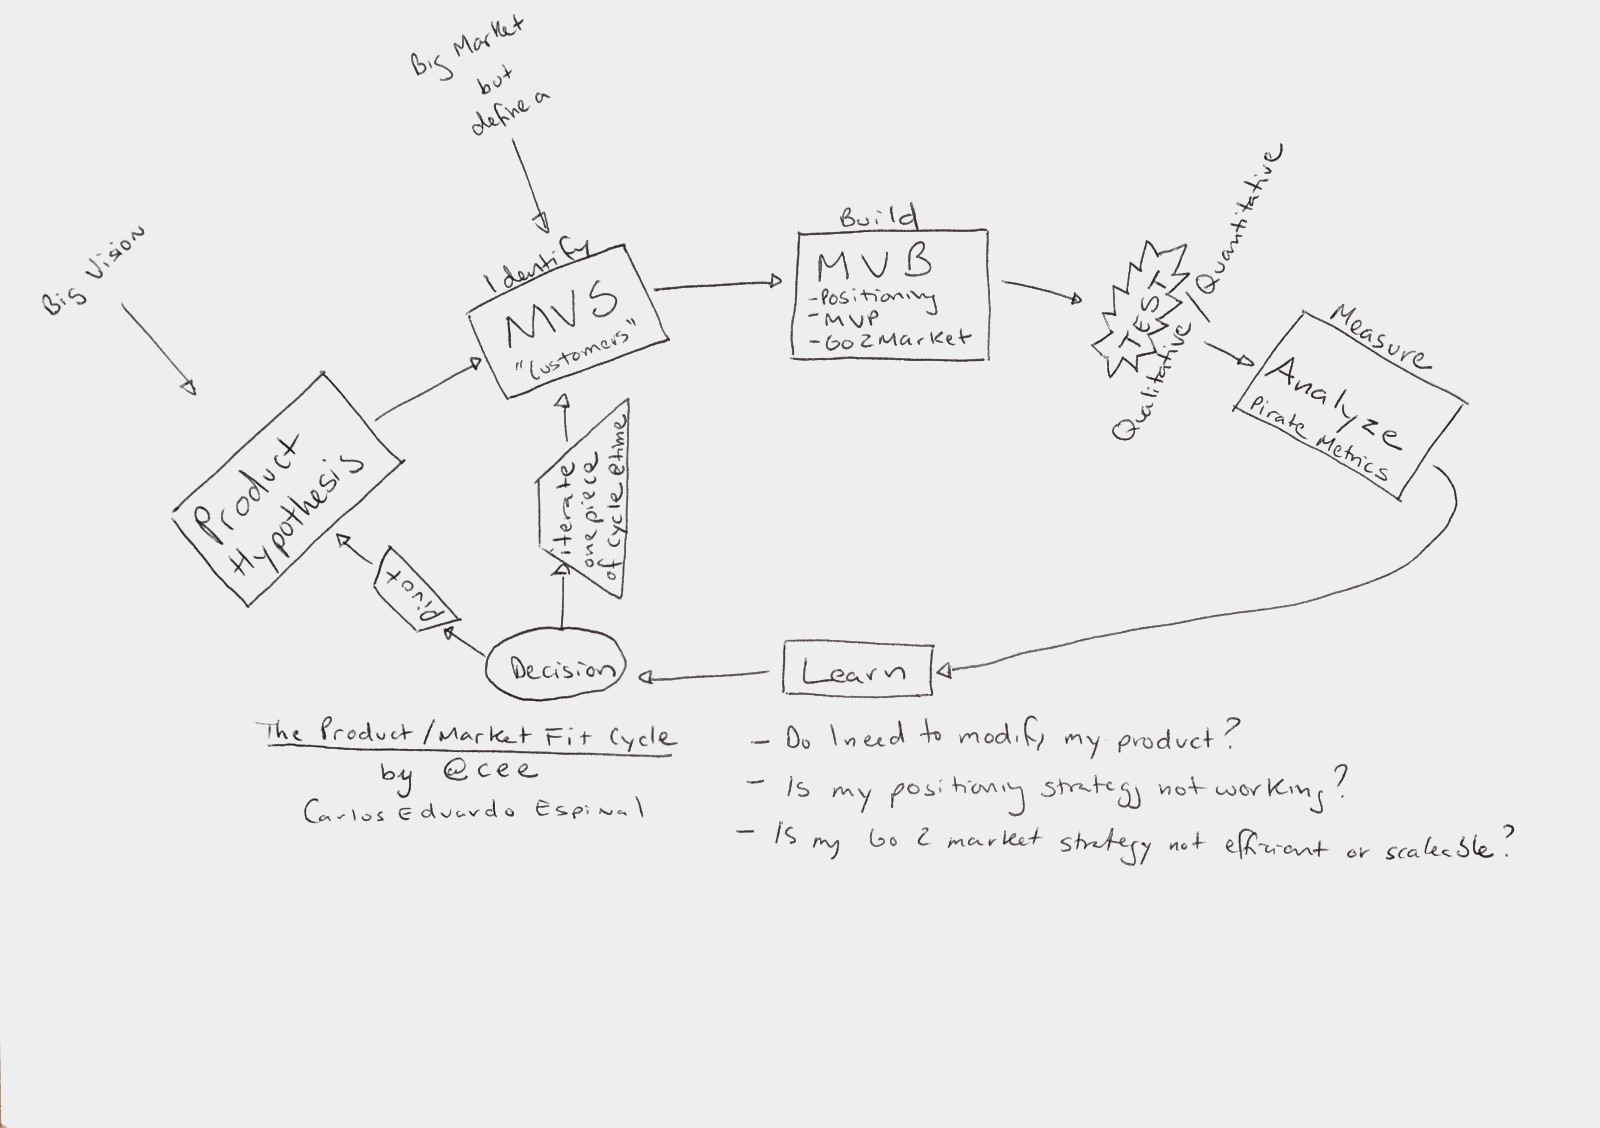 Big Market
but
define a
Big Vision
Identify
MVS
"Customers"
Build
MVB
-Positioning
-MVP
-Go 2 Market
TEST
Qualitative / Quantitative
Measure
Analyze
Pirate Metrics
Product
Hypothesis
iterate
one piece
of cycle @time
Pivot
Decision
Learn
The Product/Market Fit Cycle
by @cee
Carlos Eduardo Espinal
- Do I need to modify my product?
- Is my positioning strategy not working?
- Is my Go 2 market strategy not efficient or scaleable?